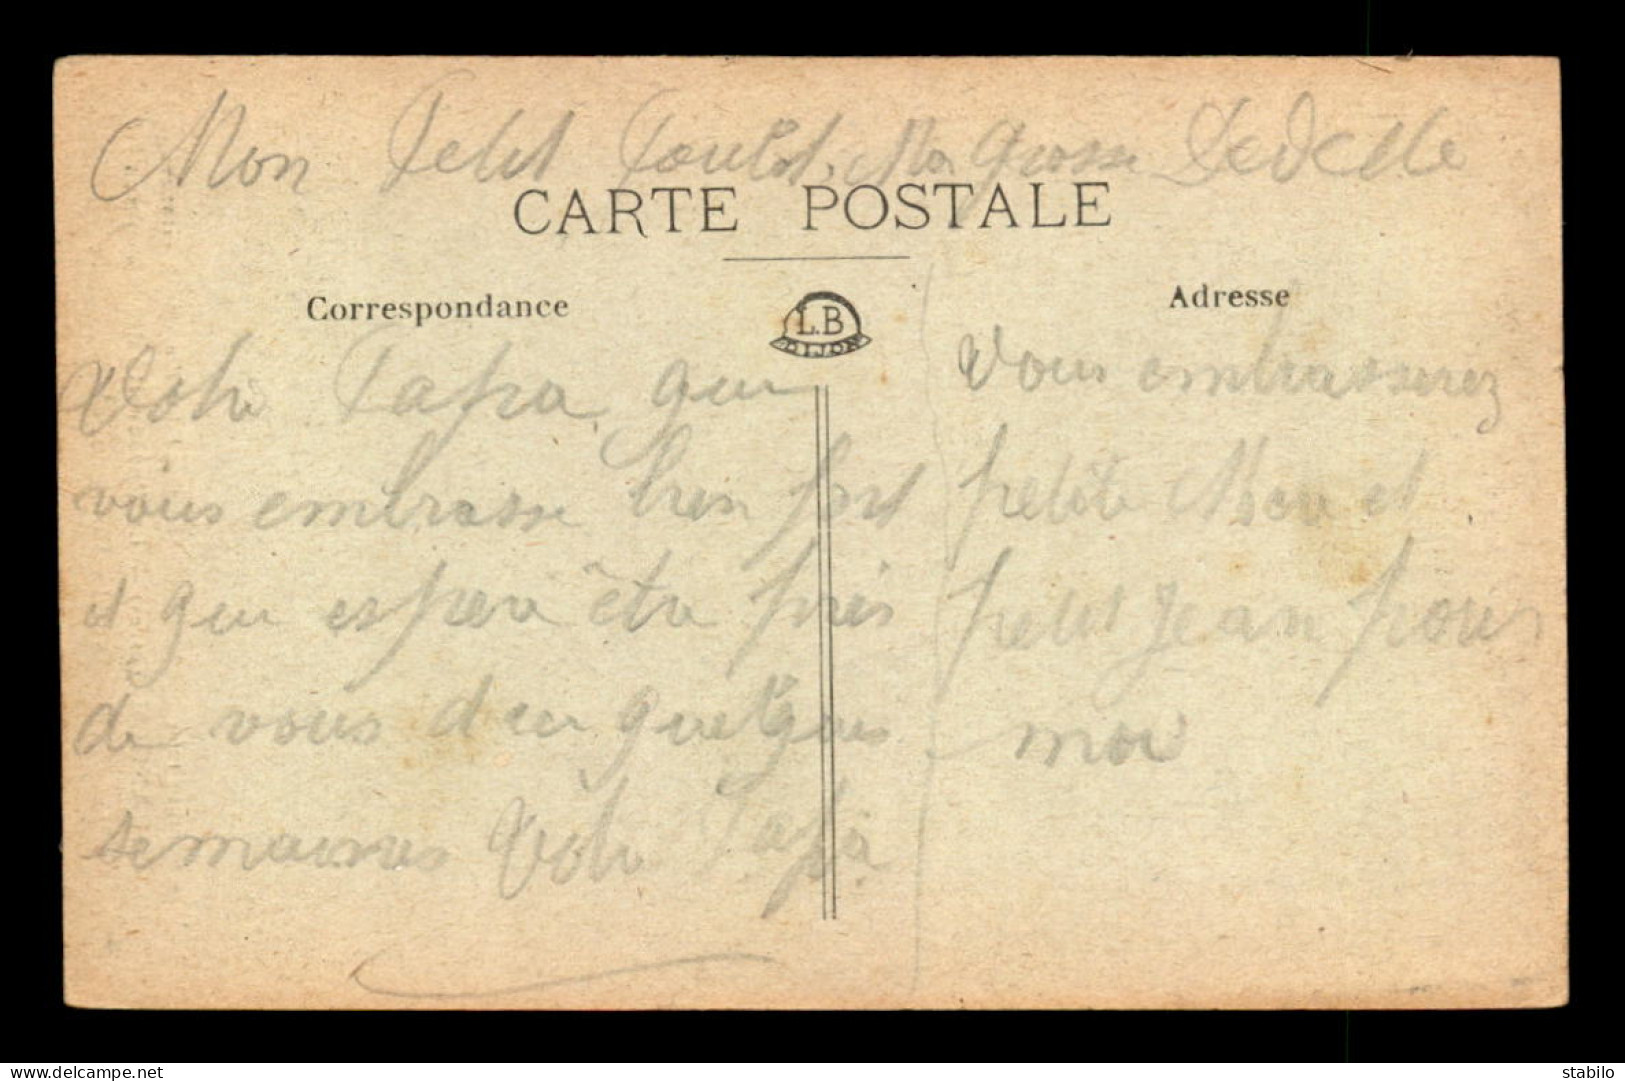 Mon Petit Poulot, Ma Grosse Dedelle
CARTE POSTALE
Correspondance
L.B
DIJON
Adresse
Votre Papa qui
vous embrasse bien fort
et qui espere être près
de vous d'ici quelques
semaines Votre Papa
Vous embrasserez
petite Mere et
petit Jean pour
moi
delcampe.net
stabilo